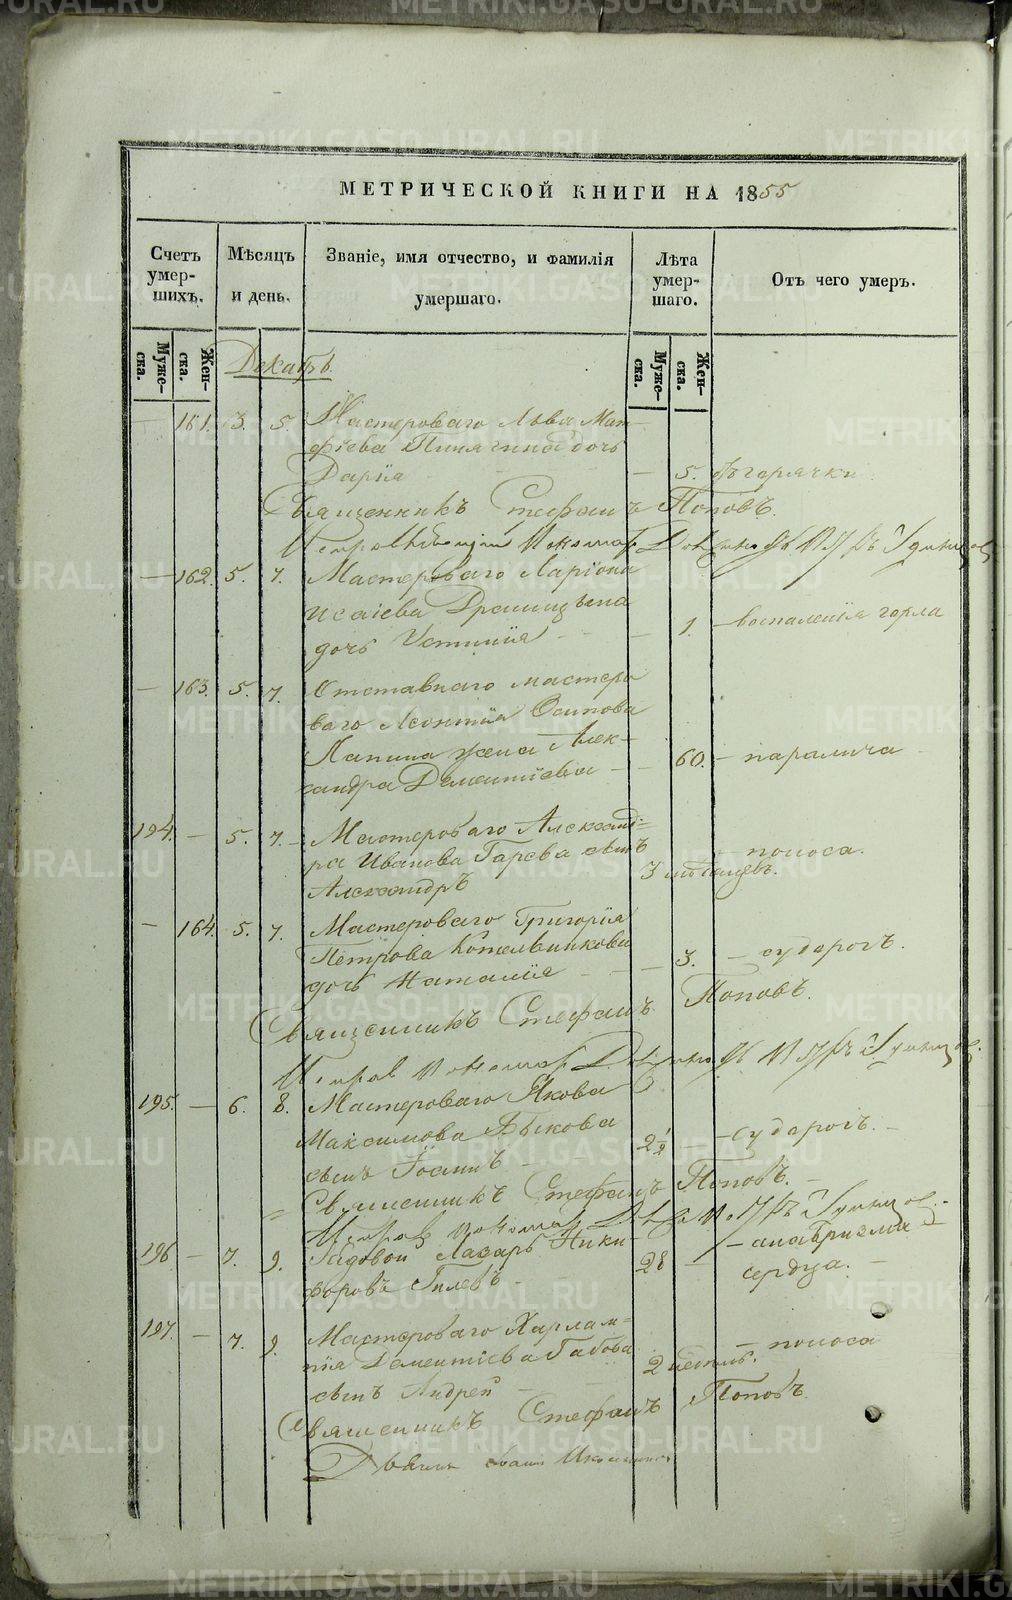 МЕТРИЧЕСКОЙ КНИГИ НА 1855
Счетъ умер-шихъ.
Мѣсяцъ и день.
Званіе, имя отчество, и фамилія умершаго.
Лѣта умер-шаго.
Отъ чего умеръ.
Муже-ска.
Жен-ска.
Муже-ска.
Жен-ска.
Декабрь.
— 161. 3. 5. Мастероваго Льва Мат-
фіева дочь
Дарія — 5. отъ горячки
Священникъ Стефанъ Поповъ.
— 162. 5. 7. Мастероваго Ларіона
Исаіева
дочь Устинія — 1. — воспаленія горла
— 163. 5. 7. Отставнаго мастеро
ваго Леонтія Осипова
Лапина жена Алек-
сандра Дементіева — 60. — паралича
194. — 5. 7. Мастероваго Александ-
ра Иванова Гарева сынъ
Александръ 3 месяцевъ. — поноса.
— 164. 5. 7. Мастероваго Григорія
Петрова Котельникова
дочь Наталія — 3. — судорогъ.
Священникъ Стефанъ Поповъ.
195. — 6. 8. Мастероваго Якова
Максимова Быкова
сынъ Іоаннъ 2½ — судорогъ. —
Священникъ Стефанъ Поповъ. —
196 — 7. 9. Рядовой Лазарь Ники-
форовъ Гилевъ 28 — — аневризма
сердца. —
197. — 7. 9. Мастероваго Харлам-
пія Дементіева Бабова
сынъ Андрей 2 недель. — поноса
Священникъ Стефанъ Поповъ
METRIKI.GASO-URAL.RU